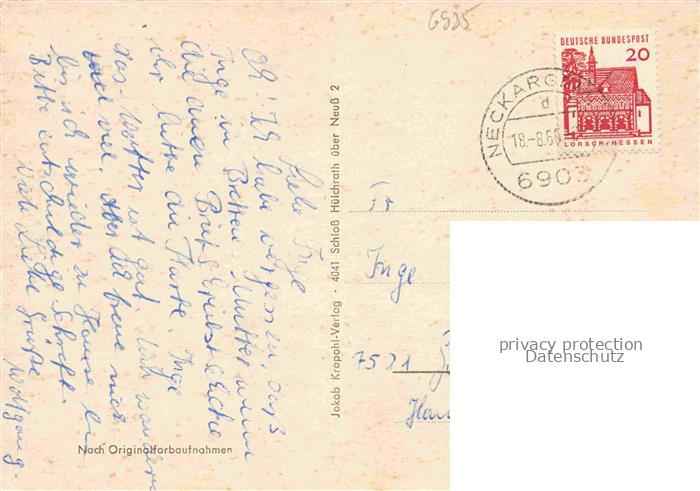 6935
DEUTSCHE BUNDESPOST
20
LORSCH/HESSEN
NECKARG
d
18.-8.66
6903
Liebe Inge
Oh! Ich habe vergessen, daß
Inge in Bretten. Mutter wenn
du einen Brief
ihr bitte die Karte. Inge
das Wetter ist gut. Wir wandern
und viel. Aber ich freue mich
bis ich wieder zu Hause bin
Bitte entschuldige Schrift.
Viele liebe Grüße
Wolfgang.
Jakob Krapohl-Verlag · 4041 Schloß Hülchrath über Neuß 2
Nach Originalfarbaufnahmen
Inge
7521
privacy protection
Datenschutz